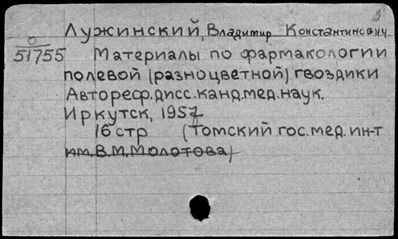 Лужинский, Владимир Константинович
О
51755
Материалы по фармакологии
полевой (разноцветной) гвоздики
Автореф.дисс.канд.мед.наук.
Иркутск, 1957
16 стр (Томский гос.мед.ин-т
им.В.М.Молотова)